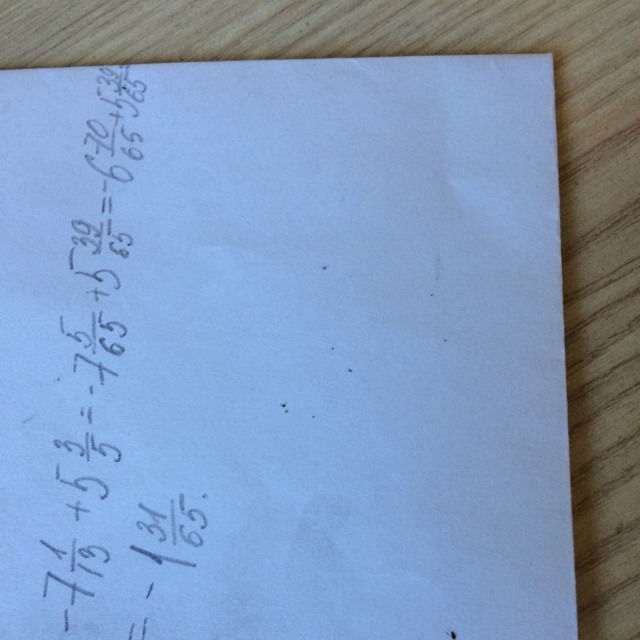 -7 1/13 + 5 3/5 = -7 5/65 + 5 39/65 = -6 70/65 + 5 39/65
= -1 31/65